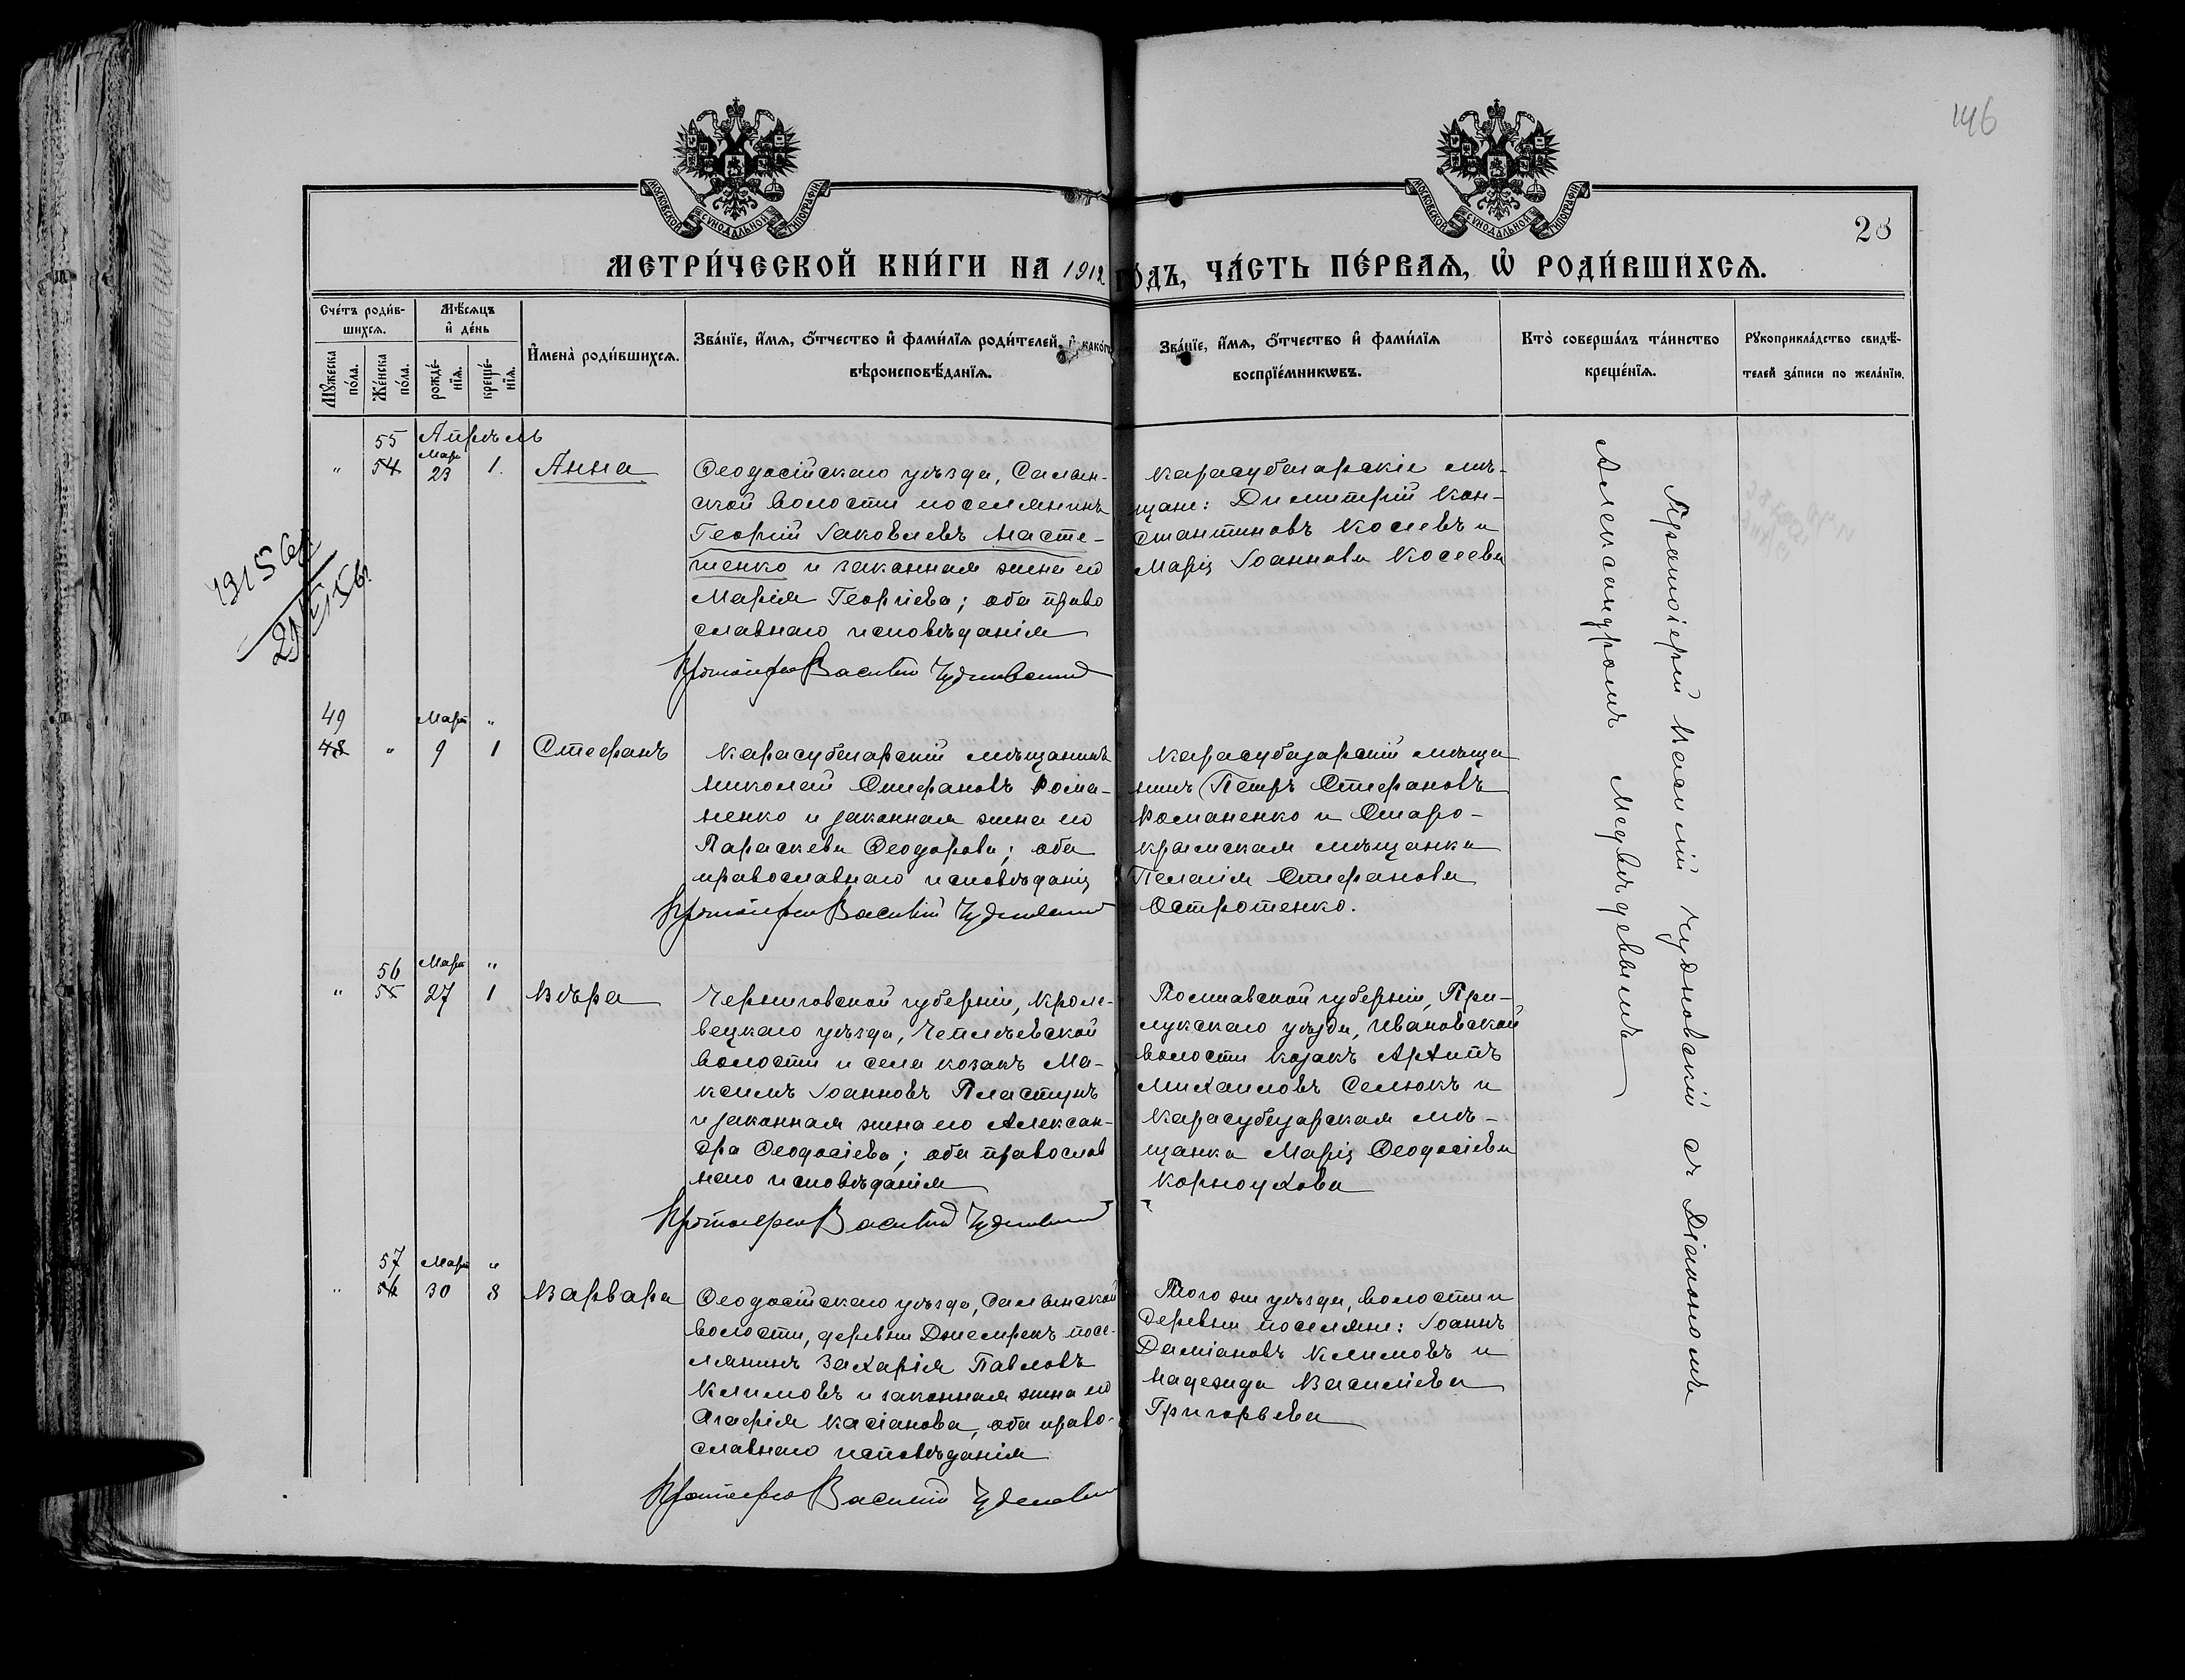 146
МОСКОВСКОЙ СѴНОДАЛЬНОЙ ТИПОГРАФІИ
МОСКОВСКОЙ СѴНОДАЛЬНОЙ ТИПОГРАФІИ
28
МЕТРИ́ЧЕСКОЙ КНИ́ГИ НА 1912 ГО́ДЪ, ЧА́СТЬ ПЕ́РВАЯ, Ѡ҆ РОДИ́ВШИХСЯ.
Сче́тъ роди́в-
шихся.
Мѣсяцъ
и҆ де́нь
Мꙋ́жеска
по́ла.
Же́нска
по́ла.
рожде́-
нїя.
креще́-
нїя.
И҆мена̀ роди́вшихся.
Зва́нїе, и҆́мя, ѻ҆́тчество и҆ фами́лїя роди́телей, и҆ како́гѡ
вѣроисповѣ́данїя.
Зва́нїе, и҆́мя, ѻ҆́тчество и҆ фами́лїя
воспрїе́мникѡвъ.
Кто̀ соверша́лъ та́инство
креще́нїя.
Рꙋкоприкла́дство свидѣ́-
телей за́писи по жела́нїю.
55 Апрѣль
" 54 Мар. 23 1. Анна
Ѳеодосійскаго уѣзда, Салын-
ской волости поселянинъ
Георгій Іаковлевъ Насте-
ченко и законная жена его
Марія Георгіева; оба право
славнаго исповѣданія
Протоіерей Василій Чудновский
Карасубазарскіе мѣ-
щане: Димитрій Кон-
стантиновъ Косѣевъ и
Марія Іоаннова Косѣева
49 Март "
48 " 9 1 Стефанъ
Карасубазарскій мѣщанинъ
Николай Стефановъ Рома-
ненко и законная жена его
Параскева Ѳеодорова; оба
православнаго исповѣданія
Протоіерей Василій Чудновский
Карасубазарскій мѣща
нинъ Петръ Стефановъ
Романенко и Старо-
крымская мѣщанка
Пелагія Стефанова
Остротенко.
56 Март "
" 55 27 1 Вѣра
Черниговской губерніи, Кроле-
вецкаго уѣзда, Чеплѣевской
волости и села козакъ Ма-
ксимъ Іоанновъ Пластунъ
и законная жена его Алексан-
дра Ѳеодосіева; оба православ
наго исповѣданія
Протоіерей Василій Чудновский
Полтавской губерніи, При-
лукскаго уѣзда, Ивановской
волости козакъ Архипъ
Михаиловъ Селюкъ и
Карасубазарская мѣ-
щанка Марія Ѳеодосіева
Корноухова
57 Март "
" 56 30 8 Варвара
Ѳеодосійскаго уѣзда, Салынской
волости, деревни Джемрекъ посе-
лянинъ Захарія Павловъ
Климовъ и законная жена его
Агафія Касіанова, оба право-
славнаго исповѣданія
Протоіерей Василій Чудновский
Того же уѣзда, волости и
деревни поселяне: Іоаннъ
Даміановъ Климовъ и
Надежда Василіева
Григорьева
Протоіерей Василій Чудновскій съ Діакономъ
Александромъ Медвѣдевымъ